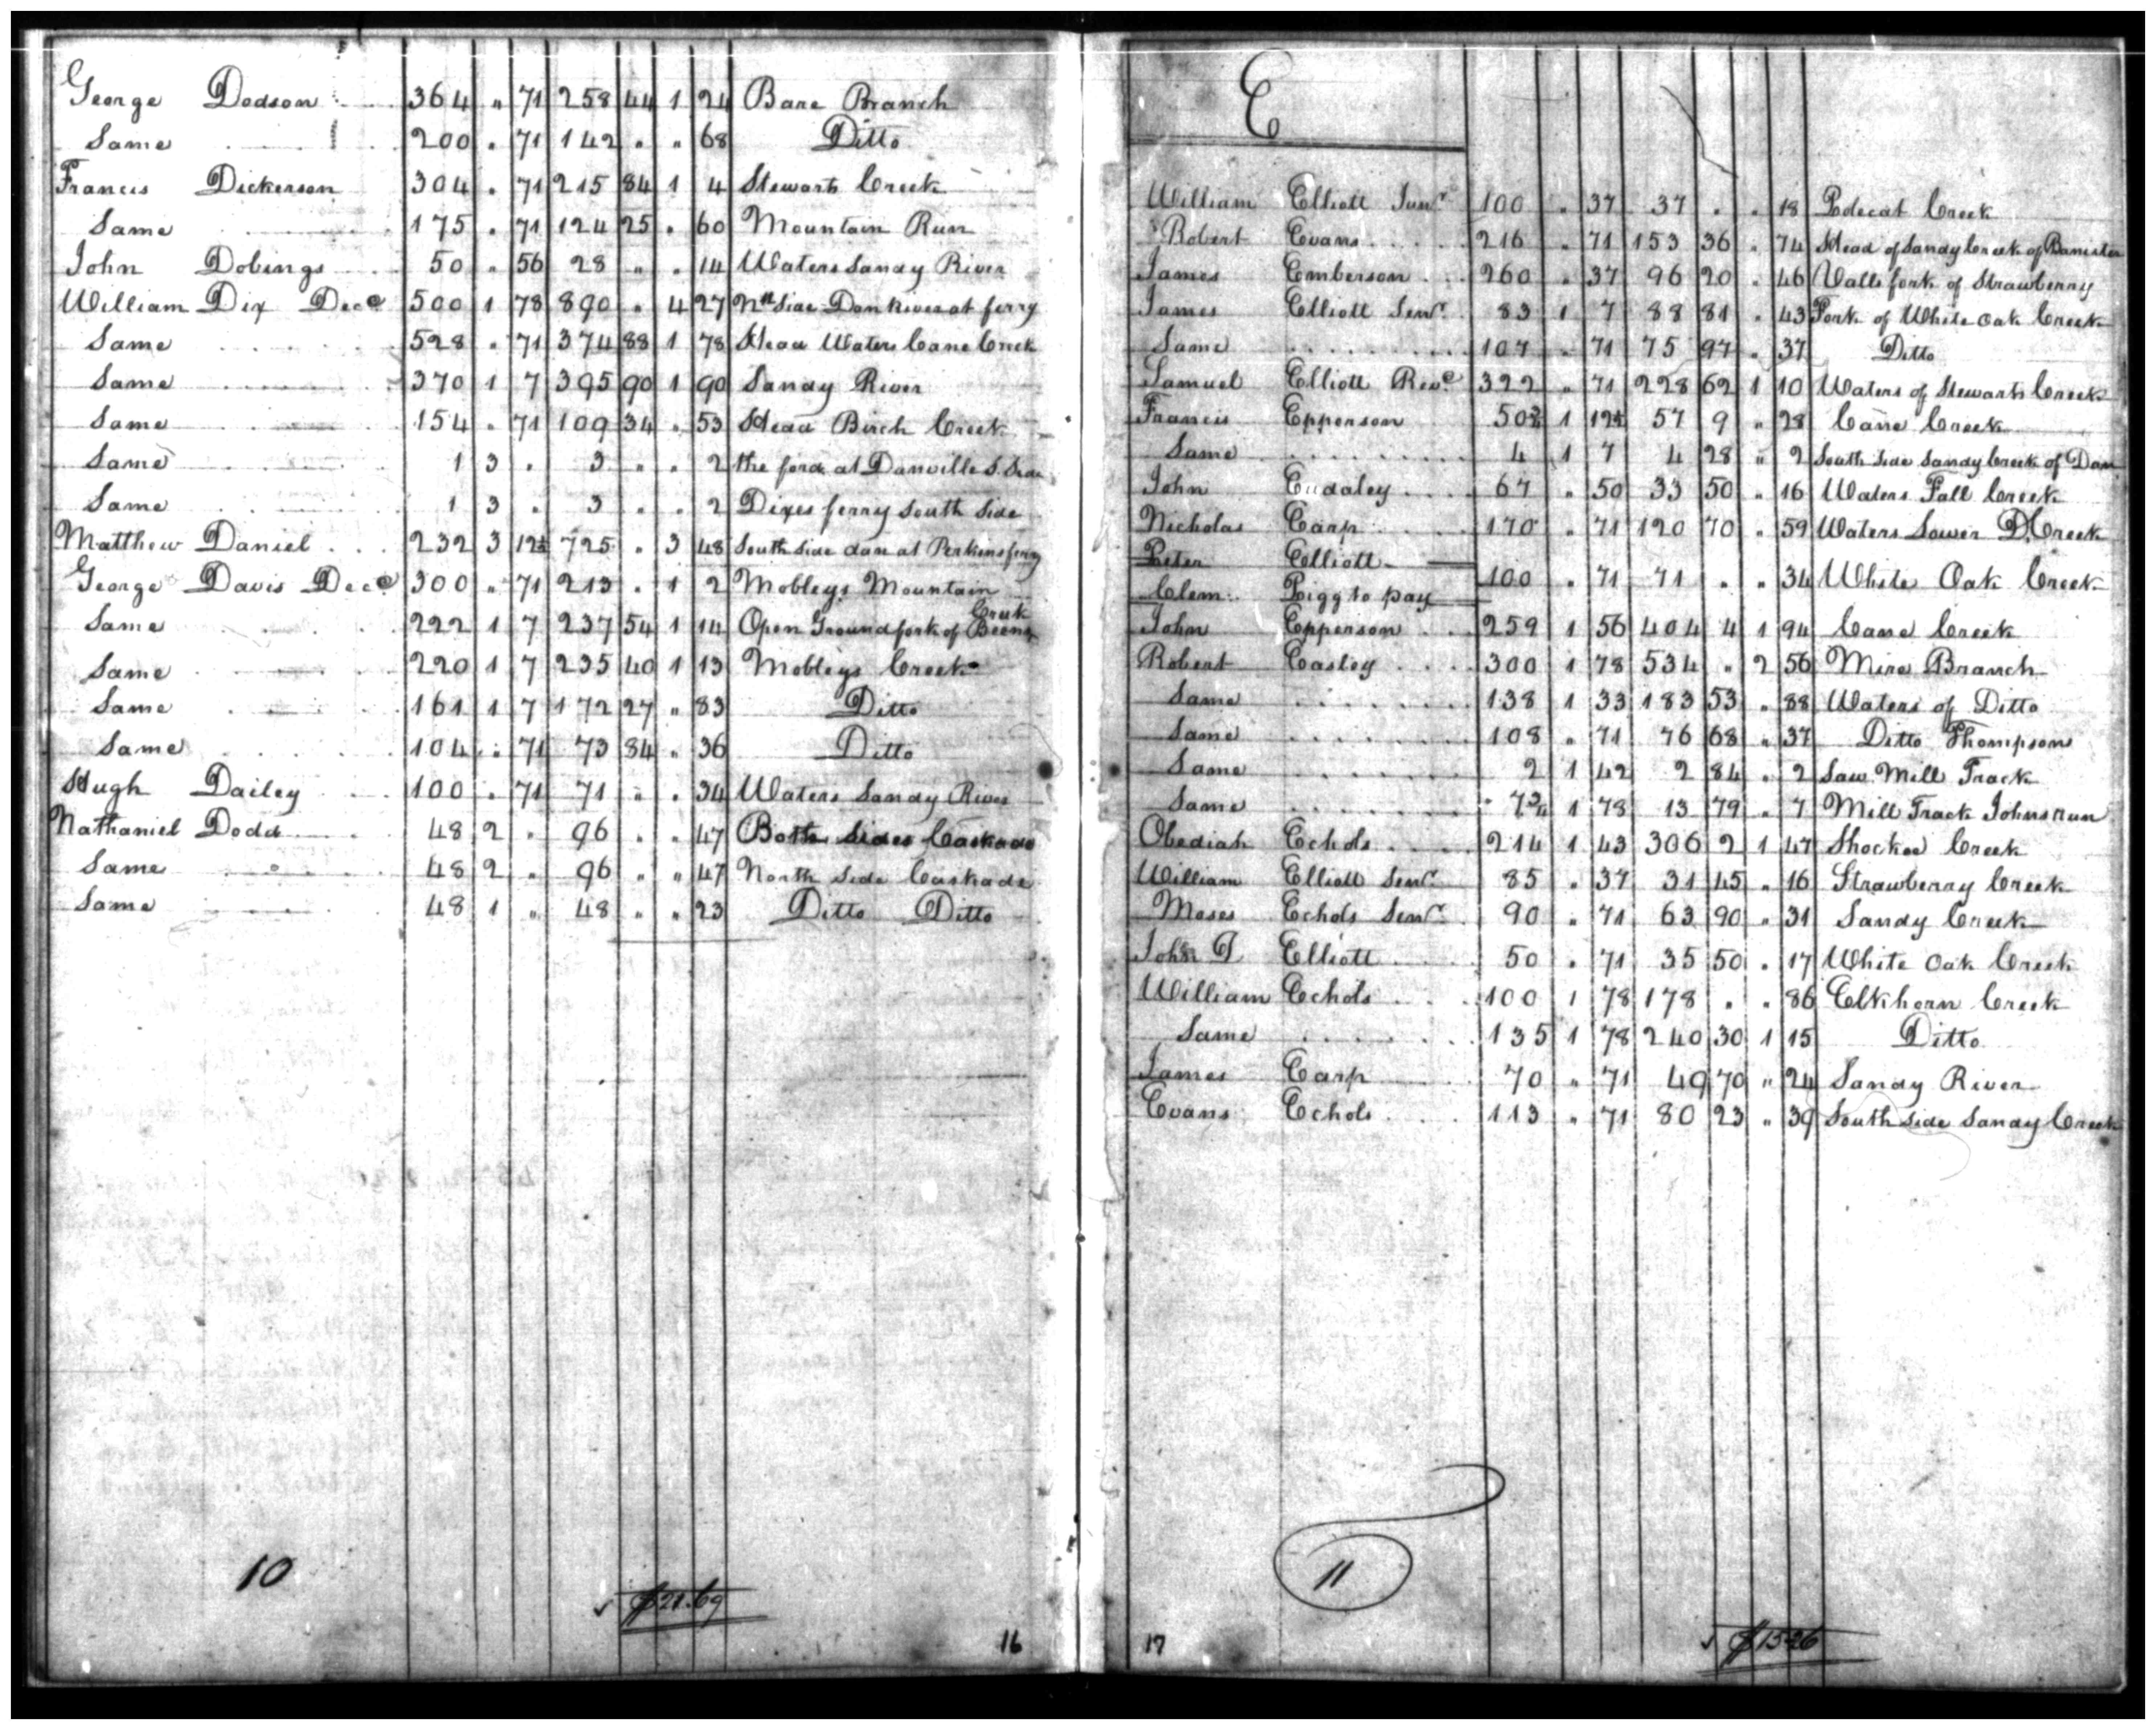 George Dodson 364 " 71 258 44 1 24 Bare Branch
Same 200 " 71 142 " " 68 Ditto
Francis Dickerson 304 " 71 215 84 1 4 Stewarts Creek
Same 175 " 71 124 25 " 60 Mountain Run
John Dobings 50 " 56 28 " " 14 Waters Sandy River
William Dix Decd 500 1 78 890 " 4 27 Nth Side Dan River at ferry
Same 528 " 71 374 88 1 78 Head Waters Cane Creek
Same 370 1 7 395 90 1 90 Sandy River
Same 154 " 71 109 34 " 53 Head Birch Creek
Same 1 3 " 3 " " 2 the ford at Danville S. Side
Same 1 3 " 3 " " 2 Dixes ferry South Side
Matthew Daniel 232 3 12½ 725 " 3 48 South side dan at Perkins ferry
George Davis Decd 300 " 71 213 " 1 2 Mobleys Mountain
Same 222 1 7 237 54 1 14 Open Ground fork of Creek
Same 220 1 7 235 40 1 13 Mobleys Creek
Same 161 1 7 172 27 " 83 Ditto
Same 104 " 71 73 84 " 36 Ditto
Hugh Dailey 100 " 71 71 " " 34 Waters Sandy River
Nathaniel Dodd 48 2 " 96 " " 47 Both Sides Caskade
Same 48 2 " 96 " " 47 North Side Caskade
Same 48 1 " 48 " " 23 Ditto Ditto
10
$21.69
16
E
William Elliott Junr 100 " 37 37 " " 18 Polecat Creek
Robert Evans 216 " 71 153 36 " 74 Head of Sandy Creek of Banister
James Emberson 260 " 37 96 20 " 46 Valls fork of Strawberry
James Elliott Senr 83 1 7 88 81 " 43 Fork of White oak Creek
Same 107 " 71 75 97 " 37 Ditto
Samuel Elliott Revd 322 " 71 228 62 1 10 Waters of Stewarts Creek
Francis Epperson 50¾ 1 12½ 57 9 " 28 Cane Creek
Same 4 1 7 4 28 " 2 South Side Sandy Creek of Dan
John Eudaley 67 " 50 33 50 " 16 Waters Fall Creek
Nicholas Earp 170 " 71 120 70 " 59 Waters Lower D. Creek
Peter Elliott
100 " 71 71 " " 34 White Oak Creek
Clem: Pigg to pay
John Epperson 259 1 56 404 4 1 94 Cane Creek
Robert Easley 300 1 78 534 " 2 56 Mire Branch
Same 138 1 33 183 53 " 88 Waters of Ditto
Same 108 " 71 76 68 " 37 Ditto Thompson
Same 2 1 42 2 84 " 2 Saw Mill Track
Same 7¾ 1 78 13 79 " 7 Mill Track Johns run
Obediah Echols 214 1 43 306 2 1 47 Shockoe Creek
William Elliott Senr 85 " 37 31 45 " 16 Strawberry Creek
Moses Echols Senr 90 " 71 63 90 " 31 Sandy Creek
John Elliott 50 " 71 35 50 " 17 White Oak Creek
William Echols 100 1 78 178 " " 86 Elkhorn Creek
Same 135 1 78 240 30 1 15 Ditto
James Earp 70 " 71 49 70 " 24 Sandy River
Evans Echols 113 " 71 80 23 " 39 South side Sandy Creek
11
17
$15.26